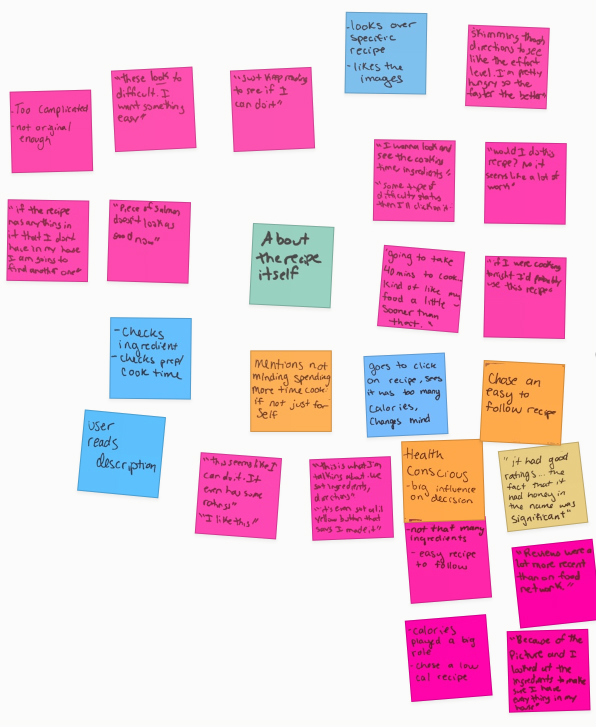 -looks over
specific
recipe
-likes the
images
skimming though
directions to see
like the effort
level. I'm pretty
hungry so the
faster the better"
-Too complicated
-not original
enough
"these look to
difficult. I
want something
easy"
"Just keep reading
to see if I
can do it"
"I wanna look and
see the cooking
time, ingredients"
"some type of
difficulty status
then I'll click on it"
"would I do this
recipe? no it
seems like a lot of
work"
"if the recipe
has anything in
it that I don't
have in my house
I am going to
find another one"
"Piece of salmon
doesn't look as
good now"
About
the recipe
itself
going to take
40 mins to cook.
kind of like my
food a little
sooner than
that."
"if I were cooking
tonight I'd probably
use this recipe"
-Checks
ingredient
-checks prep/
cook time
Mentions not
minding spending
more time cook
if not just for
self
goes to click
on recipe, sees
it has too many
calories,
changes mind
Chose an
easy to
follow recipe
user
reads
description
"this seems like I
can do it. It
even has some
ratings"
"I like this"
"this is what I'm
talking about. we
got ingredients,
directions"
-it's even got a lil
yellow button that
says I made it"
Health
Conscious
-big influence
on decision
"it had good
ratings... the
fact that it
had honey in
the name was
significant"
-not that many
ingredients
-easy recipe
to follow
"Reviews were a
lot more recent
than on food
network"
-calories
played a big
role
-chose a low
cal recipe
"Because of the
Picture and I
looked at the
ingredients to make
sure I have
everything in my
house"